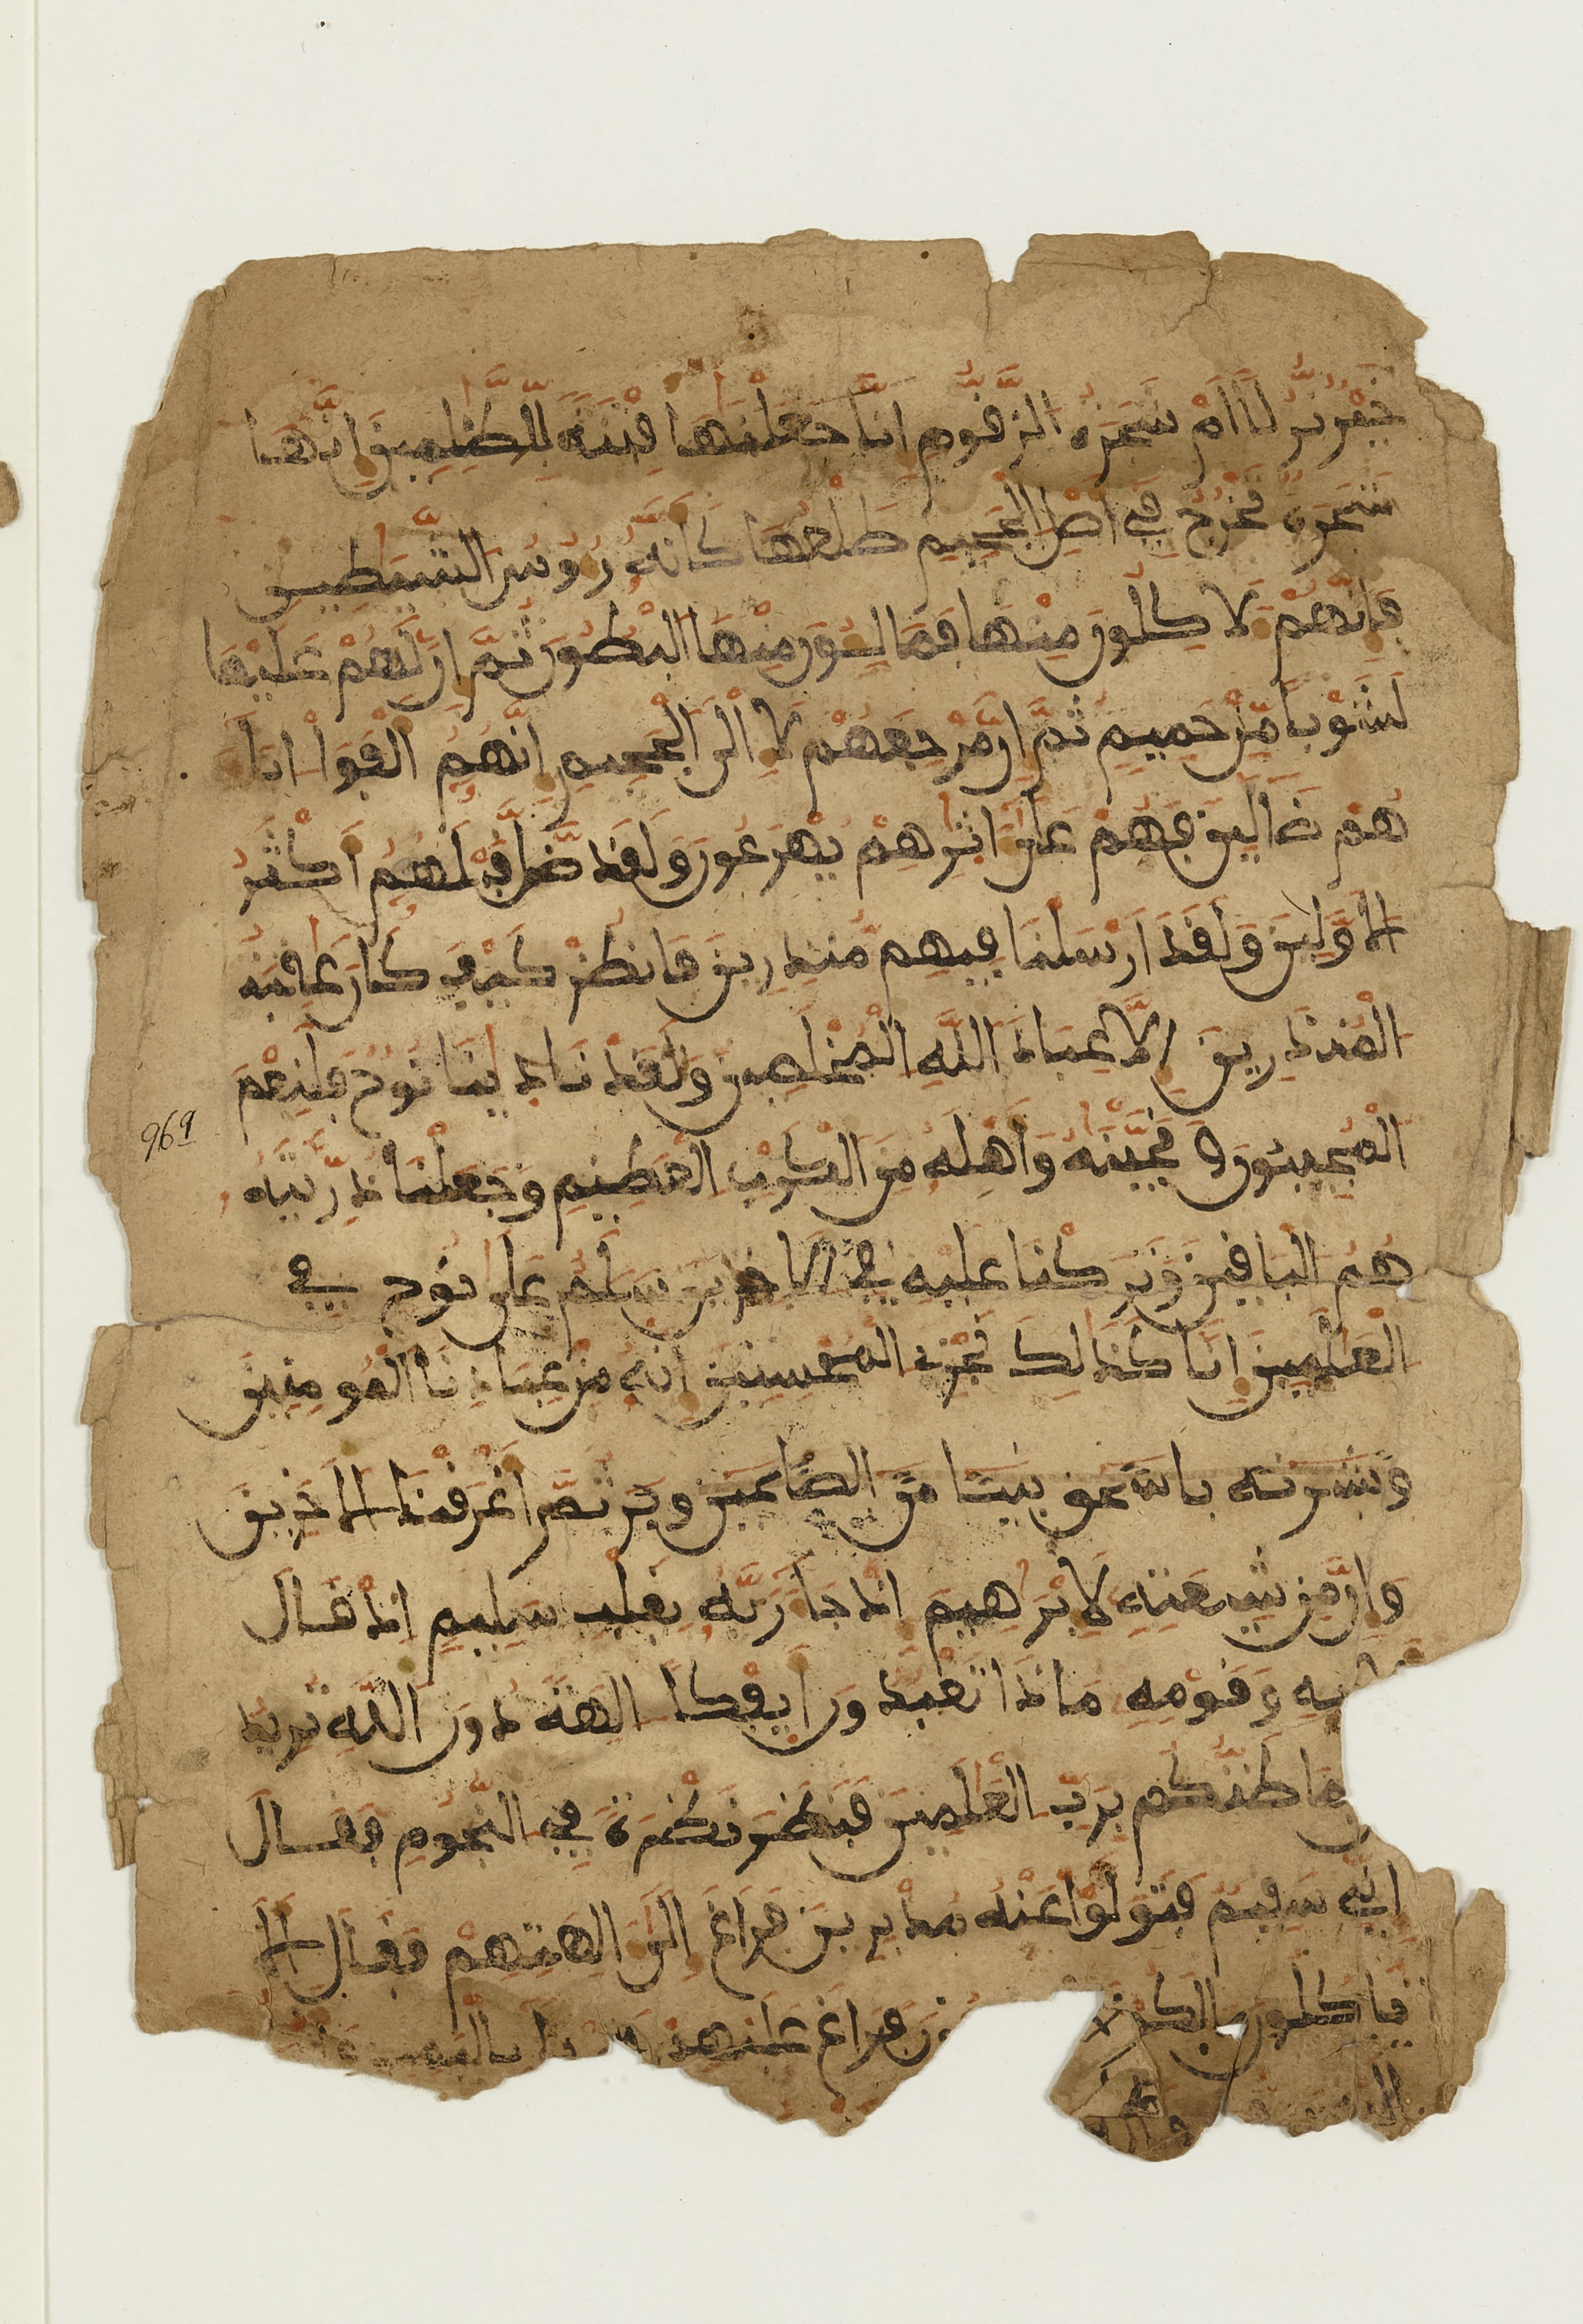 خير نزلا ام شجرة الزقوم انا جعلنها فتنة للظلمين انها
شجرة تخرج في اصل الجحيم طلعها كانه رءوس الشيطين
فانهم لاكلون منها فمالئون منها البطون ثم ان لهم عليها
لشوبا من حميم ثم ان مرجعهم لا الى الجحيم انهم الفوا ابا
هم ضالين فهم على اثرهم يهرعون ولقد ضل قبلهم اكثر
الاولين ولقد ارسلنا فيهم منذرين فانظر كيف كان عقبة
المنذرين الا عباد الله المخلصين ولقد نادينا نوح فلنعم
المجيبون ونجينه واهله من الكرب العظيم وجعلنا ذريته
هم الباقين وتركنا عليه في الاخرين سلم على نوح في
العلمين انا كذلك نجزي المحسنين انه من عبادنا المومنين
969
وبشرنه باسحق نبيا من الصلحين ثم اغرقنا الاخرين
وان من شيعته لابرهيم اذ جا ربه بقلب سليم اذ قال
بيه وقومه ماذا تعبدون ايفكا الهة دون الله تريد
فما ظنكم برب العلمين فنظر نظرة في النجوم فقال
اني سقيم فتولوا عنه مدبرين فراغ الى الهتهم فقال الا
تاكلون مالكم فراغ عليهم باليمين